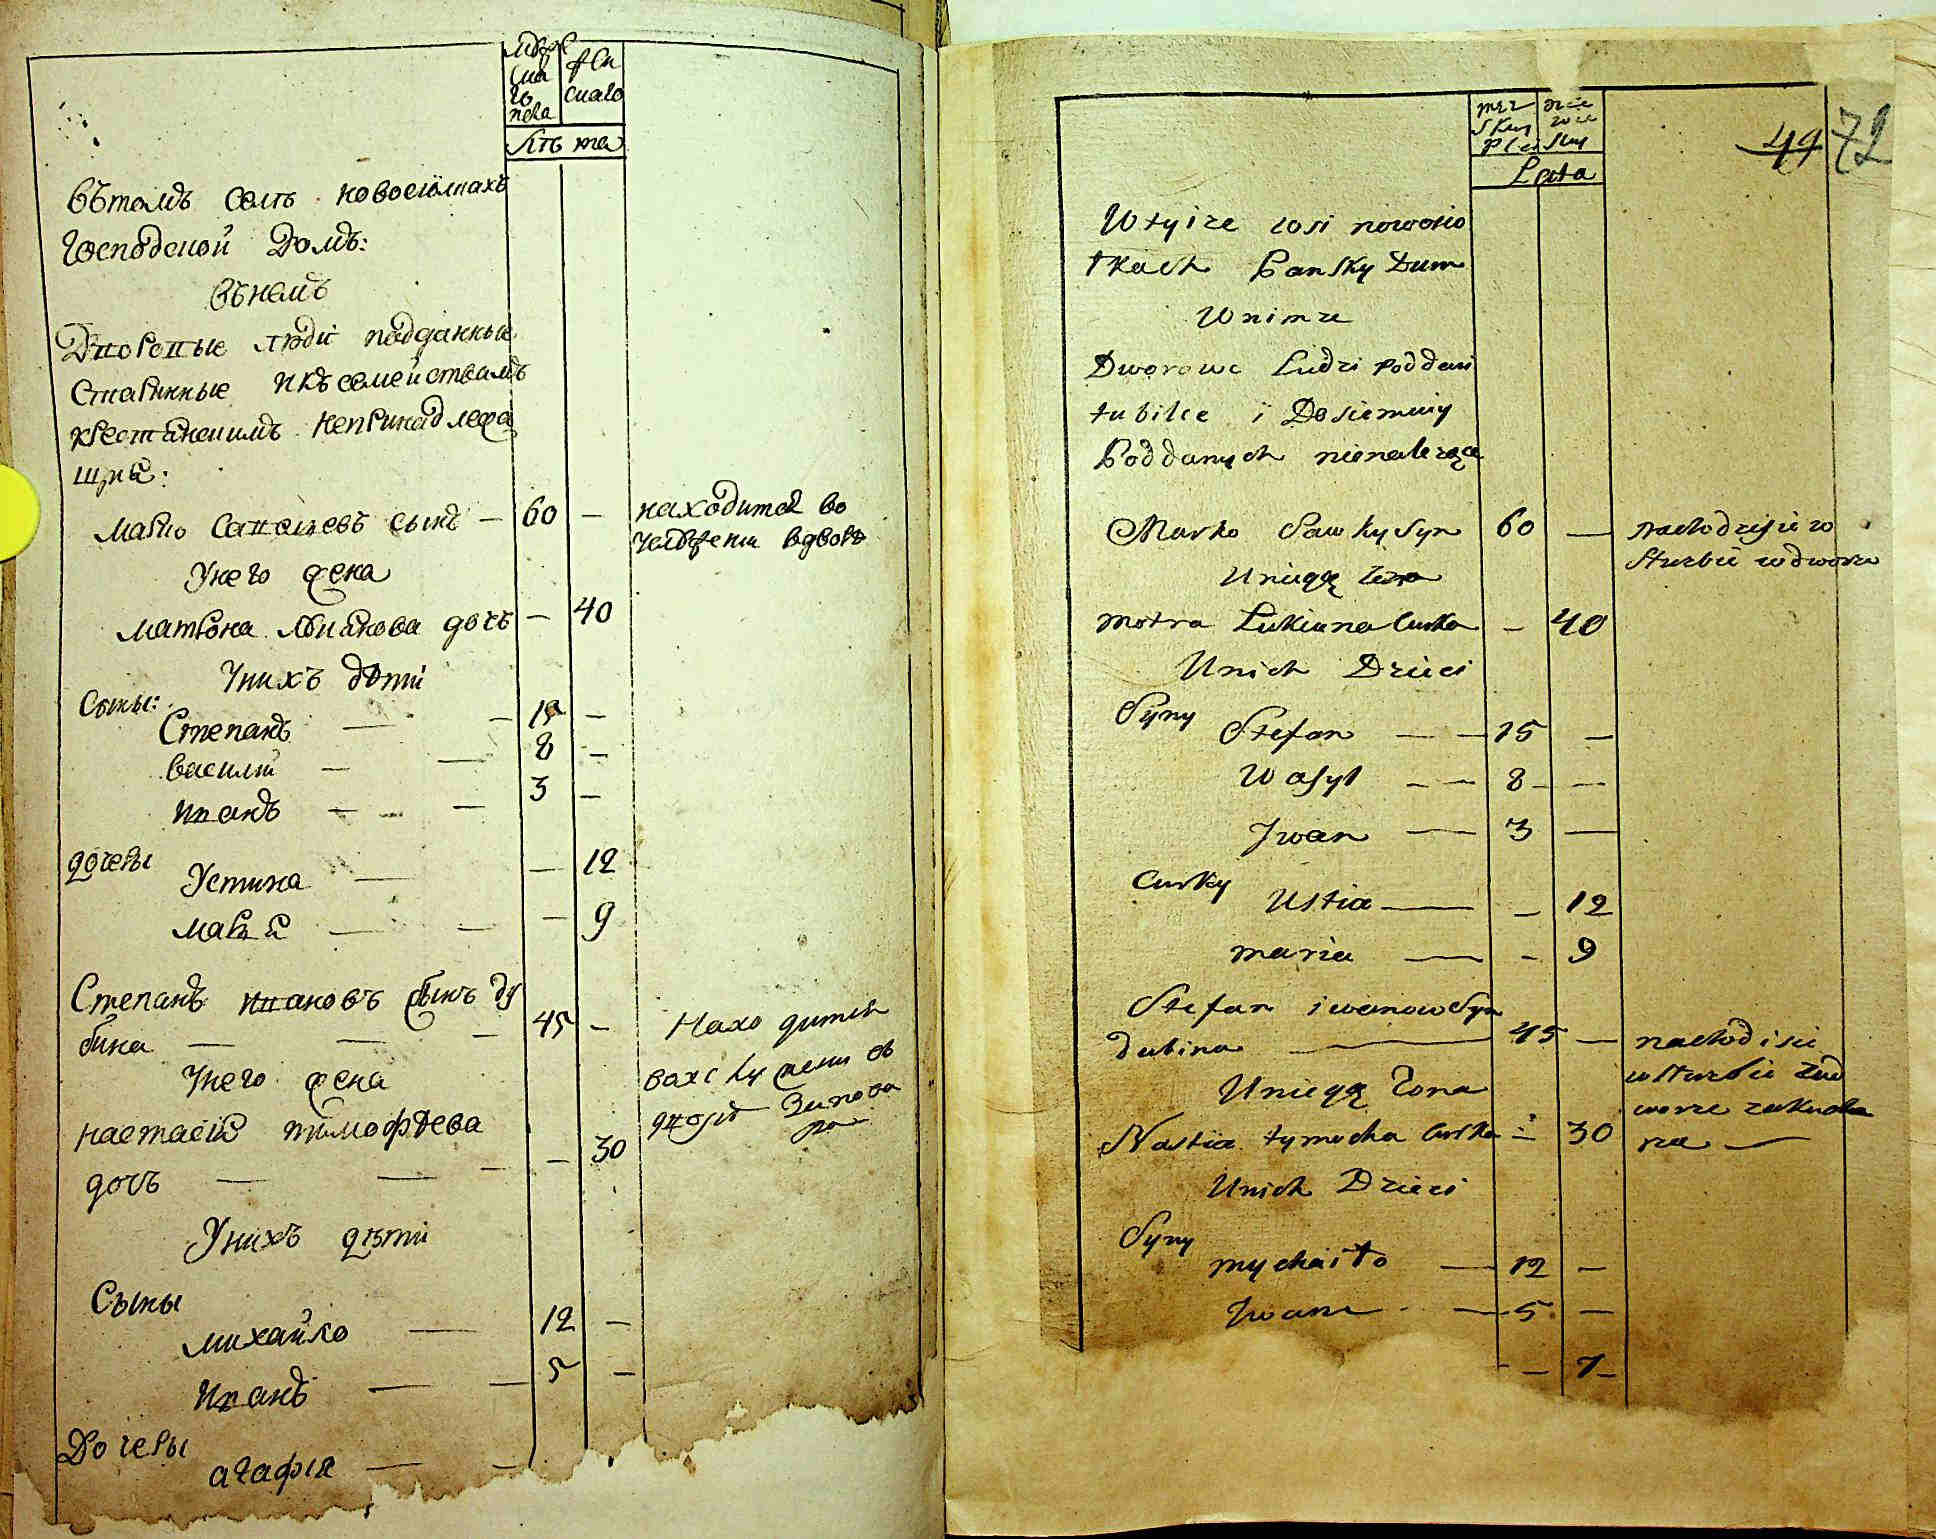 лѣта
Въ томъ селѣ новосiолкахъ
Господской Домъ:
Въ немъ
Дворовые люди подданные
Старинные и къ семействамъ
крестьянскимъ непринадлежа
щие:
Марко Савельевъ сынъ — 60 —
находится во
услужении в дворѣ
У него жена
Матрона Лукянова дочь — 40
У нихъ дѣти
Сыны:
Степанъ — — 15 —
Василий — — 8 —
Иванъ — — 3 —
дочеры
Устина — — 12
Мария — — — 9
Степанъ Ивановъ сынъ ду
бина — — — 45 —
Находится
У него жена
Настасия Тимофѣева
дочь — — — — 30
У нихъ дѣти
Сыны
Михайло — 12 —
Иванъ — — 5 —
Дочеры
агафия — —
49 72
mez skey plci
Lata
W tyize wsi nowosio
łkach Pansky Dum
W nimze
Dworowe Ludzi poddani
tubilce i Do siemiiy
Poddanych nienalezące
Marko Sawky Syn 60 —
nachodzi sie w
służbie w dworze
U niego żona
Motra Lukiana Curka — 40
U nich Dzieci
Syny
Stefan — — 15 —
Wasyl — — 8 — —
Jwan — 3 —
Curky
Ustia — — 12
maria — — 9
Stefan iwanow Syn
dubina — 45 —
nachodi sie
w służbie
U niego żona
Nastia tymocha Curka — 30
U nich Dzieci
Syny
mychaiło — 12 —
Jwan — 5 —
— 7 —